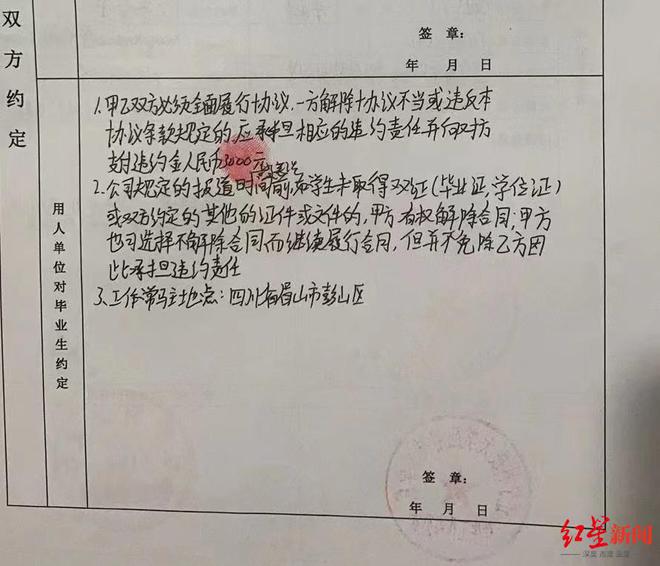 双方约定
签 章：
年 月 日
用人单位对毕业生约定
1.甲乙双方必须全面履行协议.一方解除协议不当或违反本
协议条款规定的,应承担相应的违约责任并向对方
支付违约金人民币3000元
2.公司规定的报道时间前,如学生未取得双证(毕业证,学位证)
或双方约定的其他的证件或文件的,甲方有权解除合同;甲方
也可选择不解除合同而继续履行合同,但并不免除乙方因
此承担违约责任
3、工作常驻地点:四川省眉山市彭山区
签 章：
年 月 日
红星新闻
深度 态度 温度